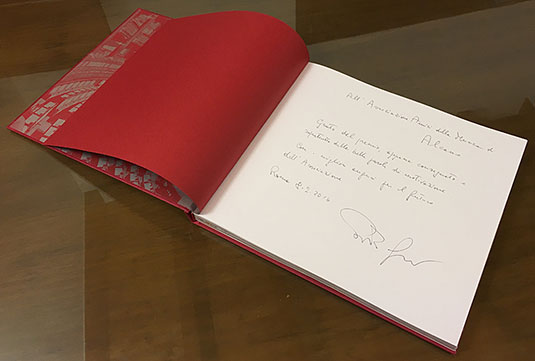 All' Associazione Amici della Musica di
Alcamo
Grato del premio appena consegnato e
soprattutto delle belle parole di motivazione
Con migliori auguri per il futuro
dell'Associazione
Roma 2016